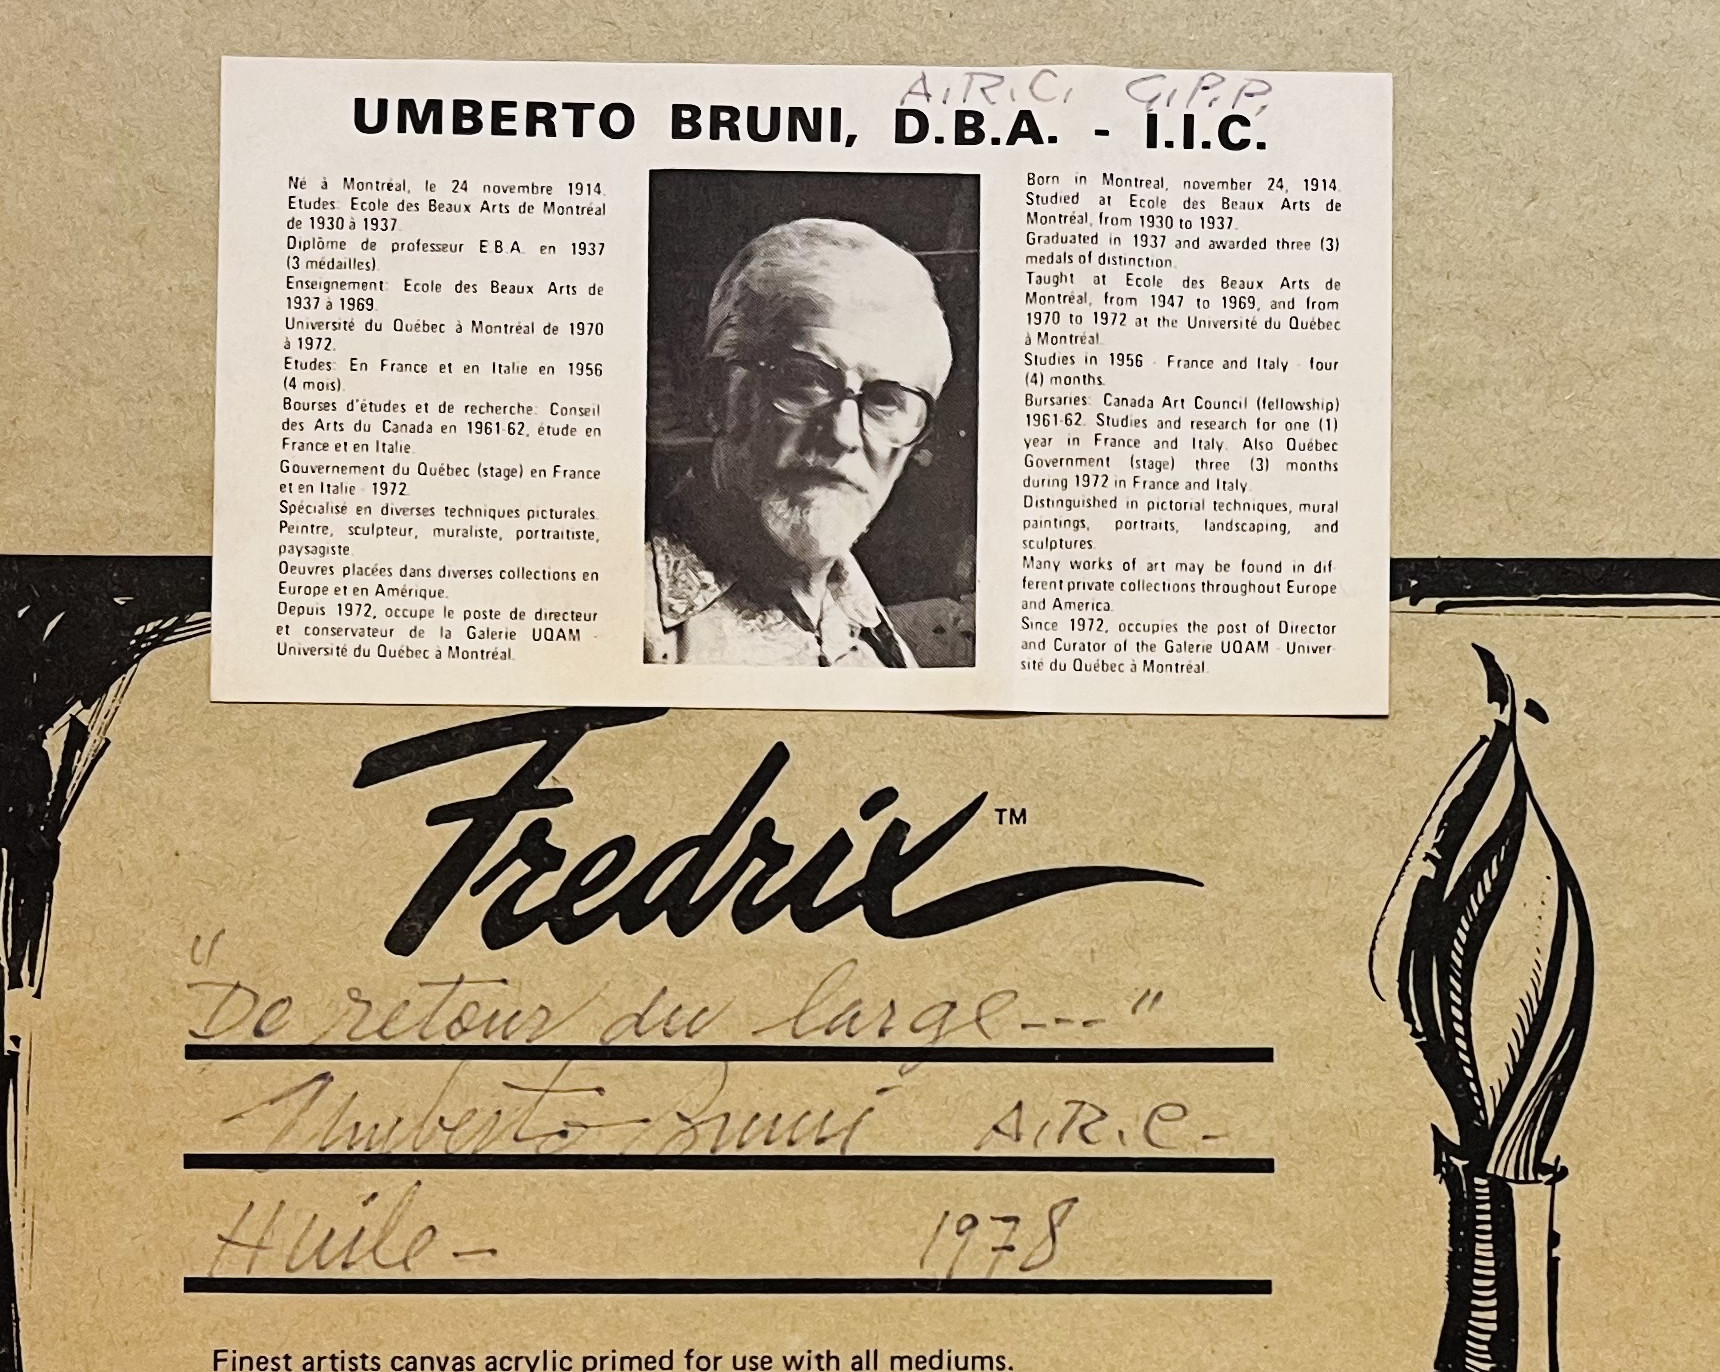 A.R.C. G.P.P.
UMBERTO BRUNI, D.B.A. - I.I.C.
Né à Montréal, le 24 novembre 1914.
Etudes: Ecole des Beaux Arts de Montréal
de 1930 à 1937.
Diplôme de professeur E.B.A. en 1937
(3 médailles).
Enseignement: Ecole des Beaux Arts de
1937 à 1969.
Université du Québec à Montréal de 1970
à 1972.
Etudes: En France et en Italie en 1956
(4 mois).
Bourses d'études et de recherche: Conseil
des Arts du Canada en 1961-62, étude en
France et en Italie.
Gouvernement du Québec (stage) en France
et en Italie - 1972.
Spécialisé en diverses techniques picturales.
Peintre, sculpteur, muraliste, portraitiste,
paysagiste.
Oeuvres placées dans diverses collections en
Europe et en Amérique.
Depuis 1972, occupe le poste de directeur
et conservateur de la Galerie UQAM -
Université du Québec à Montréal.
Born in Montreal, november 24, 1914.
Studied at Ecole des Beaux Arts de
Montréal, from 1930 to 1937.
Graduated in 1937 and awarded three (3)
medals of distinction.
Taught at Ecole des Beaux Arts de
Montréal, from 1947 to 1969, and from
1970 to 1972 at the Université du Québec
à Montréal.
Studies in 1956 - France and Italy - four
(4) months.
Bursaries: Canada Art Council (fellowship)
1961-62. Studies and research for one (1)
year in France and Italy. Also Québec
Government (stage) three (3) months
during 1972 in France and Italy.
Distinguished in pictorial techniques, mural
paintings, portraits, landscaping, and
sculptures.
Many works of art may be found in dif-
ferent private collections throughout Europe
and America.
Since 1972, occupies the post of Director
and Curator of the Galerie UQAM - Univer-
sité du Québec à Montréal.
Fredrix™
"De retour du large---"
Umberto Bruni A.R.C-
Huile- 1978
Finest artists canvas acrylic primed for use with all mediums.